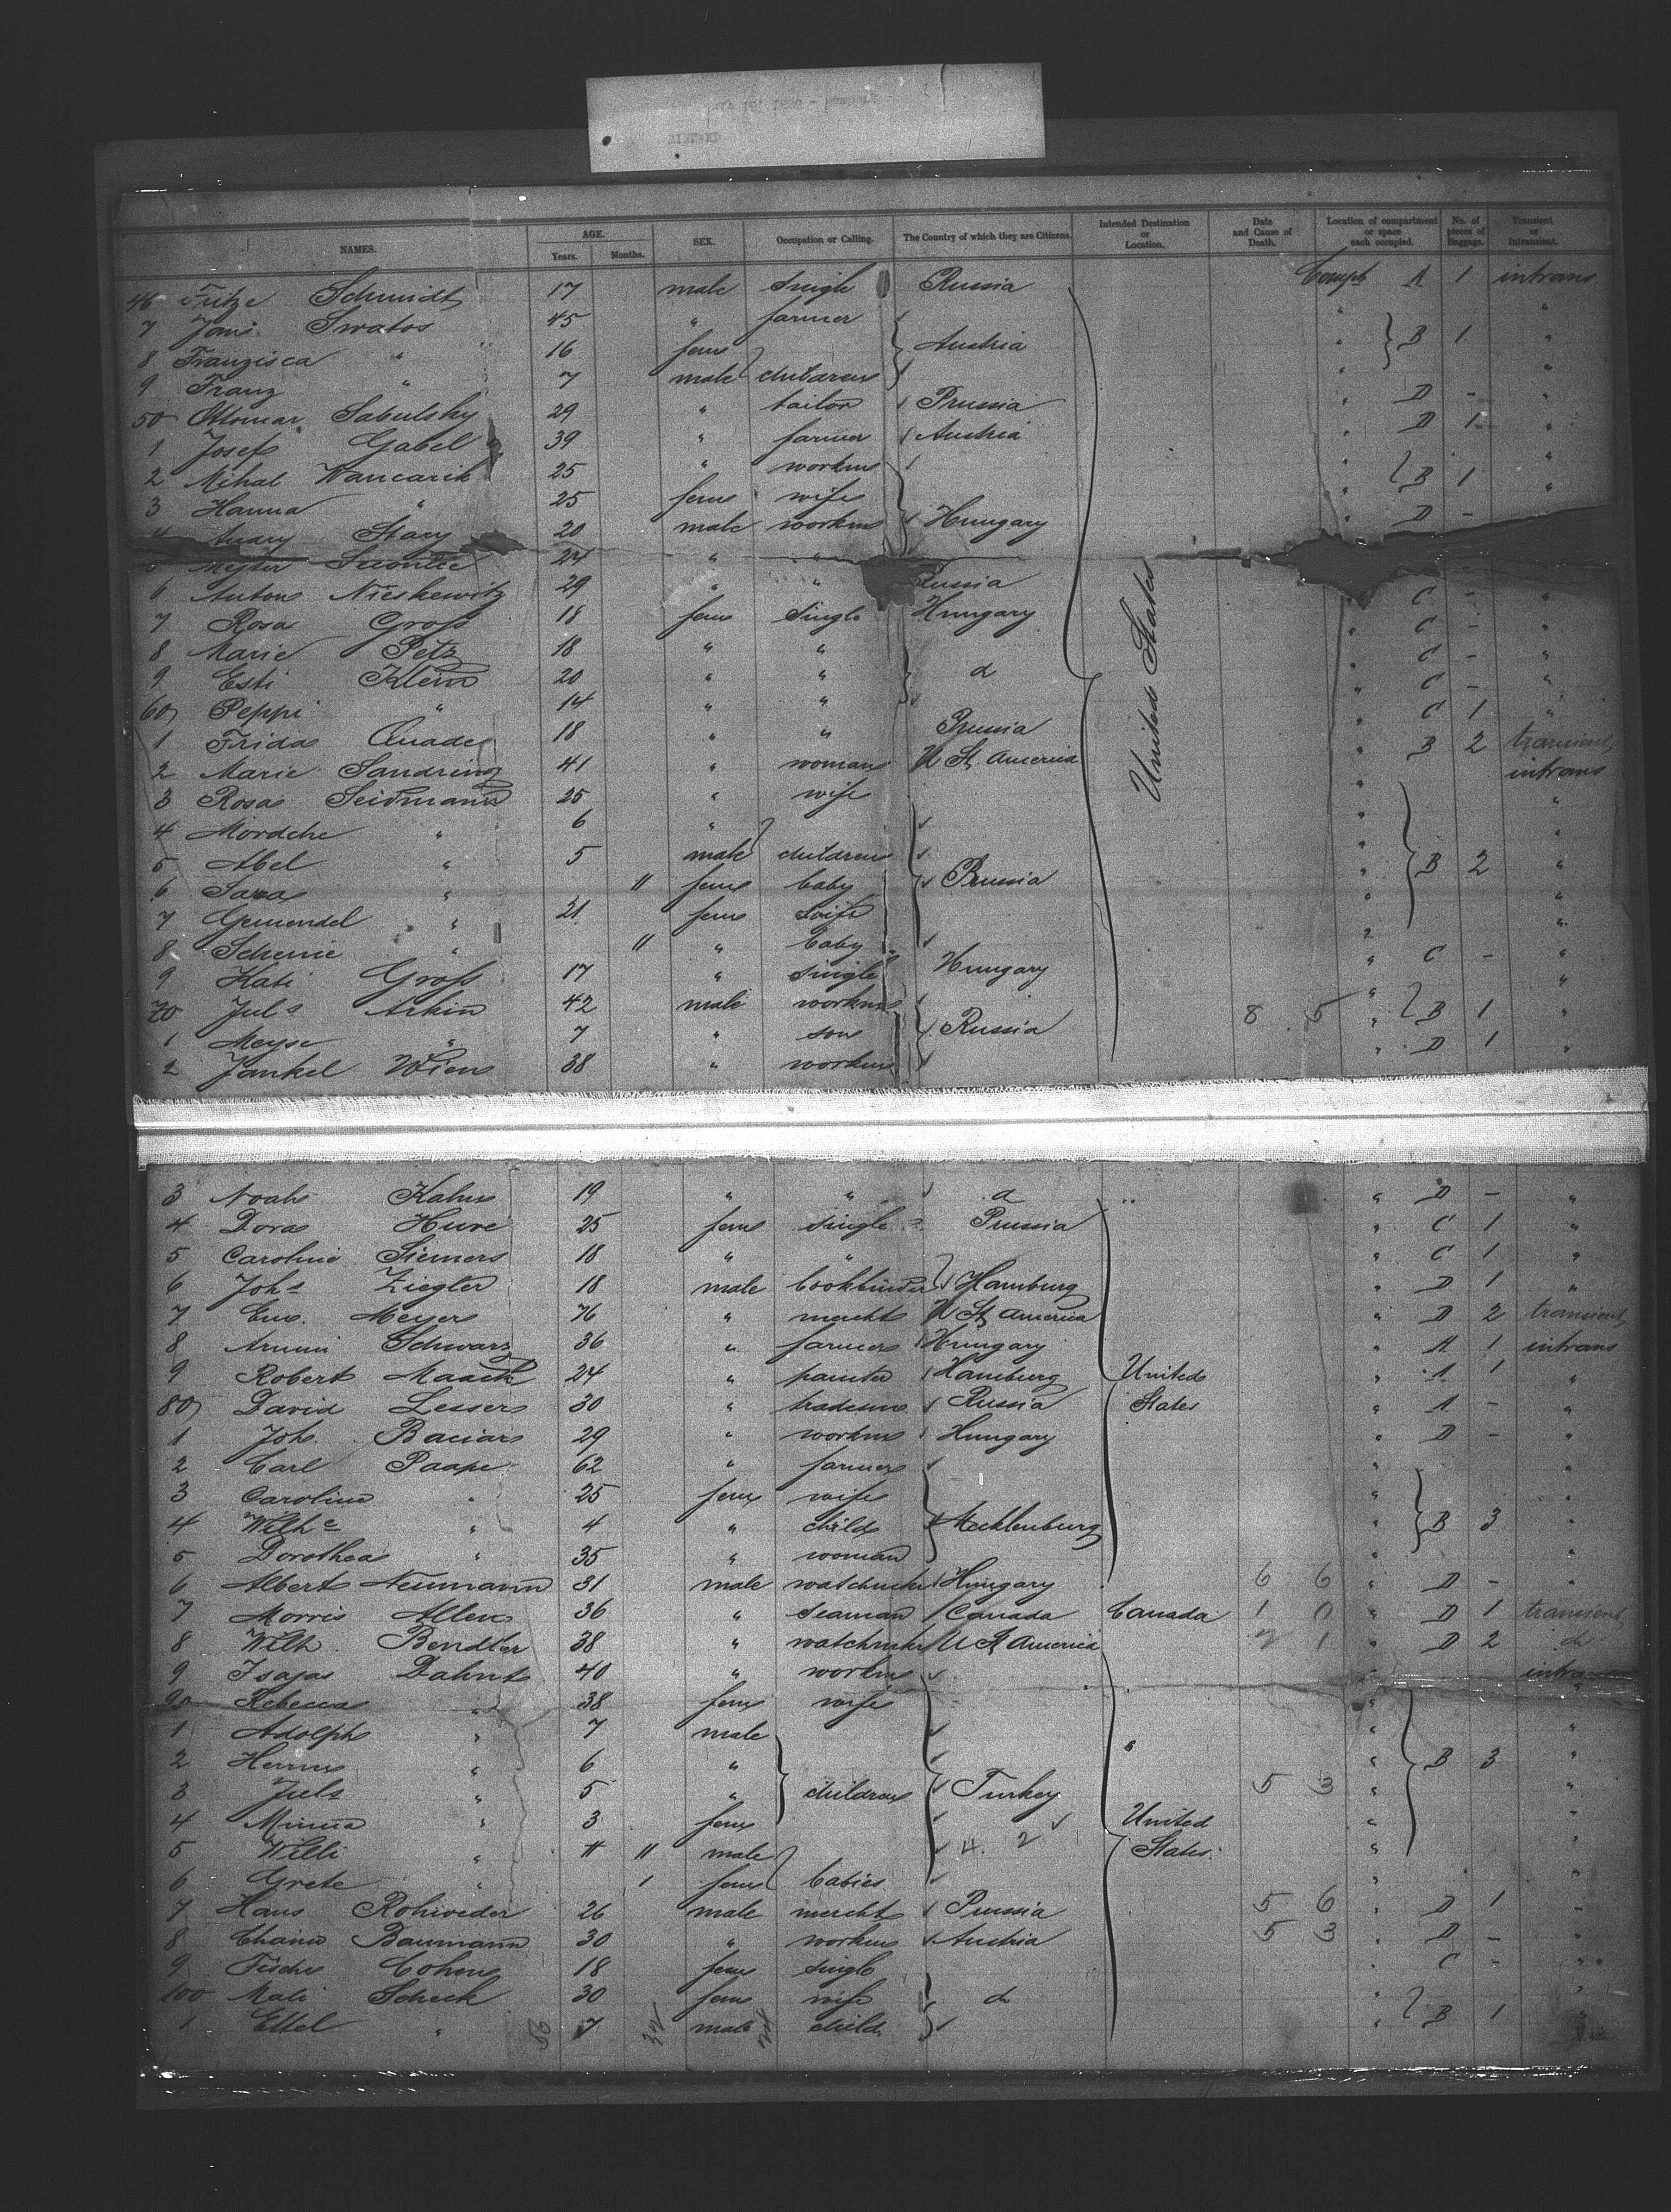 NAMES. AGE. Years. Months. SEX. Occupation or Calling. The Country of which they are Citizens. Intended Destination or Location. Date and Cause of Death. Location of compartment or space each occupied. No. of pieces of Baggage. Transient or Intransient.
46 Fritze Schmidt 17 male single Russia Compt A 1 intrans
7 Jani Swatos 45 " farmer " "
8 Franzisca " 16 fem Austria " B 1 "
9 Franz " 7 male children " "
50 Ottomar Sabulsky 29 " tailor Prussia " D - "
1 Josef Gabel 39 " farmer Austria " D 1 "
2 Mihal Wancarik 25 " workm " B 1 "
3 Hanna " 25 fem wife " "
4 Andry Stary 20 male workm Hungary " D -
24 " "
6 Anton Nieskewitz 29 " " Russia
7 Rosa Groß 18 fem single Hungary " C - "
8 Marie Petz 18 " " " C - "
9 Esti Klein 20 " " d " C - "
60 Peppi " 14 " " " C - "
1 Frida Quade 18 " " Prussia C 1 "
2 Marie Sandring 41 " woman U St. America " B 2 transient
3 Rosa Seidmann 25 " wife intrans
4 Mordche " 6 " " "
5 Abel " 5 male children " "
6 Sara " 11 fem baby Russia " B 2 "
7 Gemendel " 21 fem wife " "
8 Scheine " 11 " baby "
9 Kati Groß 17 " single Hungary " C - "
70 Juls Arkin 42 male workm " "
1 Meyse " 7 " son Russia 8 5 " B 1 "
2 Jankel Wien 38 " workm " D 1 "
United States
3 Noah Kahn 19 " " d " D - "
4 Dora Huve 25 fem single Prussia " C 1 "
5 Caroline Siemers 18 " " " C 1 "
6 Johs Ziegler 18 male bookbinder Hamburg " D 1 "
7 Em. Meyer 76 " mercht U St. America " D 2 transient
8 Armin Schwarz 36 " farmer Hungary " A 1 intrans
9 Robert Maack 24 " painter Hamburg United " A 1 "
80 David Lesser 30 " tradesm Russia States " A - "
1 Joh. Baciar 29 " workm Hungary " D - "
2 Carl Paape 62 " farmer " "
3 Caroline " 25 fem wife " "
4 Wilhe " 4 " child Mecklenburg " B 3 "
5 Dorothea " 35 " woman " "
6 Albert Neumann 31 male watchmkr Hungary 6 6 " D - "
7 Morris Allen 36 " seaman Canada Canada 1 0 " D 1 transient
8 Wilh. Bendler 38 " watchmkr U St America 2 1 " D 2 d
9 Isajas Dahnt 40 " workm intrans
90 Rebecca " 38 fem wife " "
1 Adolph " 7 male " "
2 Herm " 6 " " " B 3 "
3 Juls " 5 " children Turkey 5 3 " "
4 Minna " 3 fem United " "
5 Willi " 11 male 4. 2 States " "
6 Grete " 1 fem babies " "
7 Hans Rohweder 26 male mercht Prussia 5 6 " D 1
8 Chaim Baumann 30 " workm Austria 5 3 " D -
9 Fische Cohen 18 fem single C -
100 Mali Scheck 30 fem wife d " "
1 Ettel " 7 male child " B 1 "